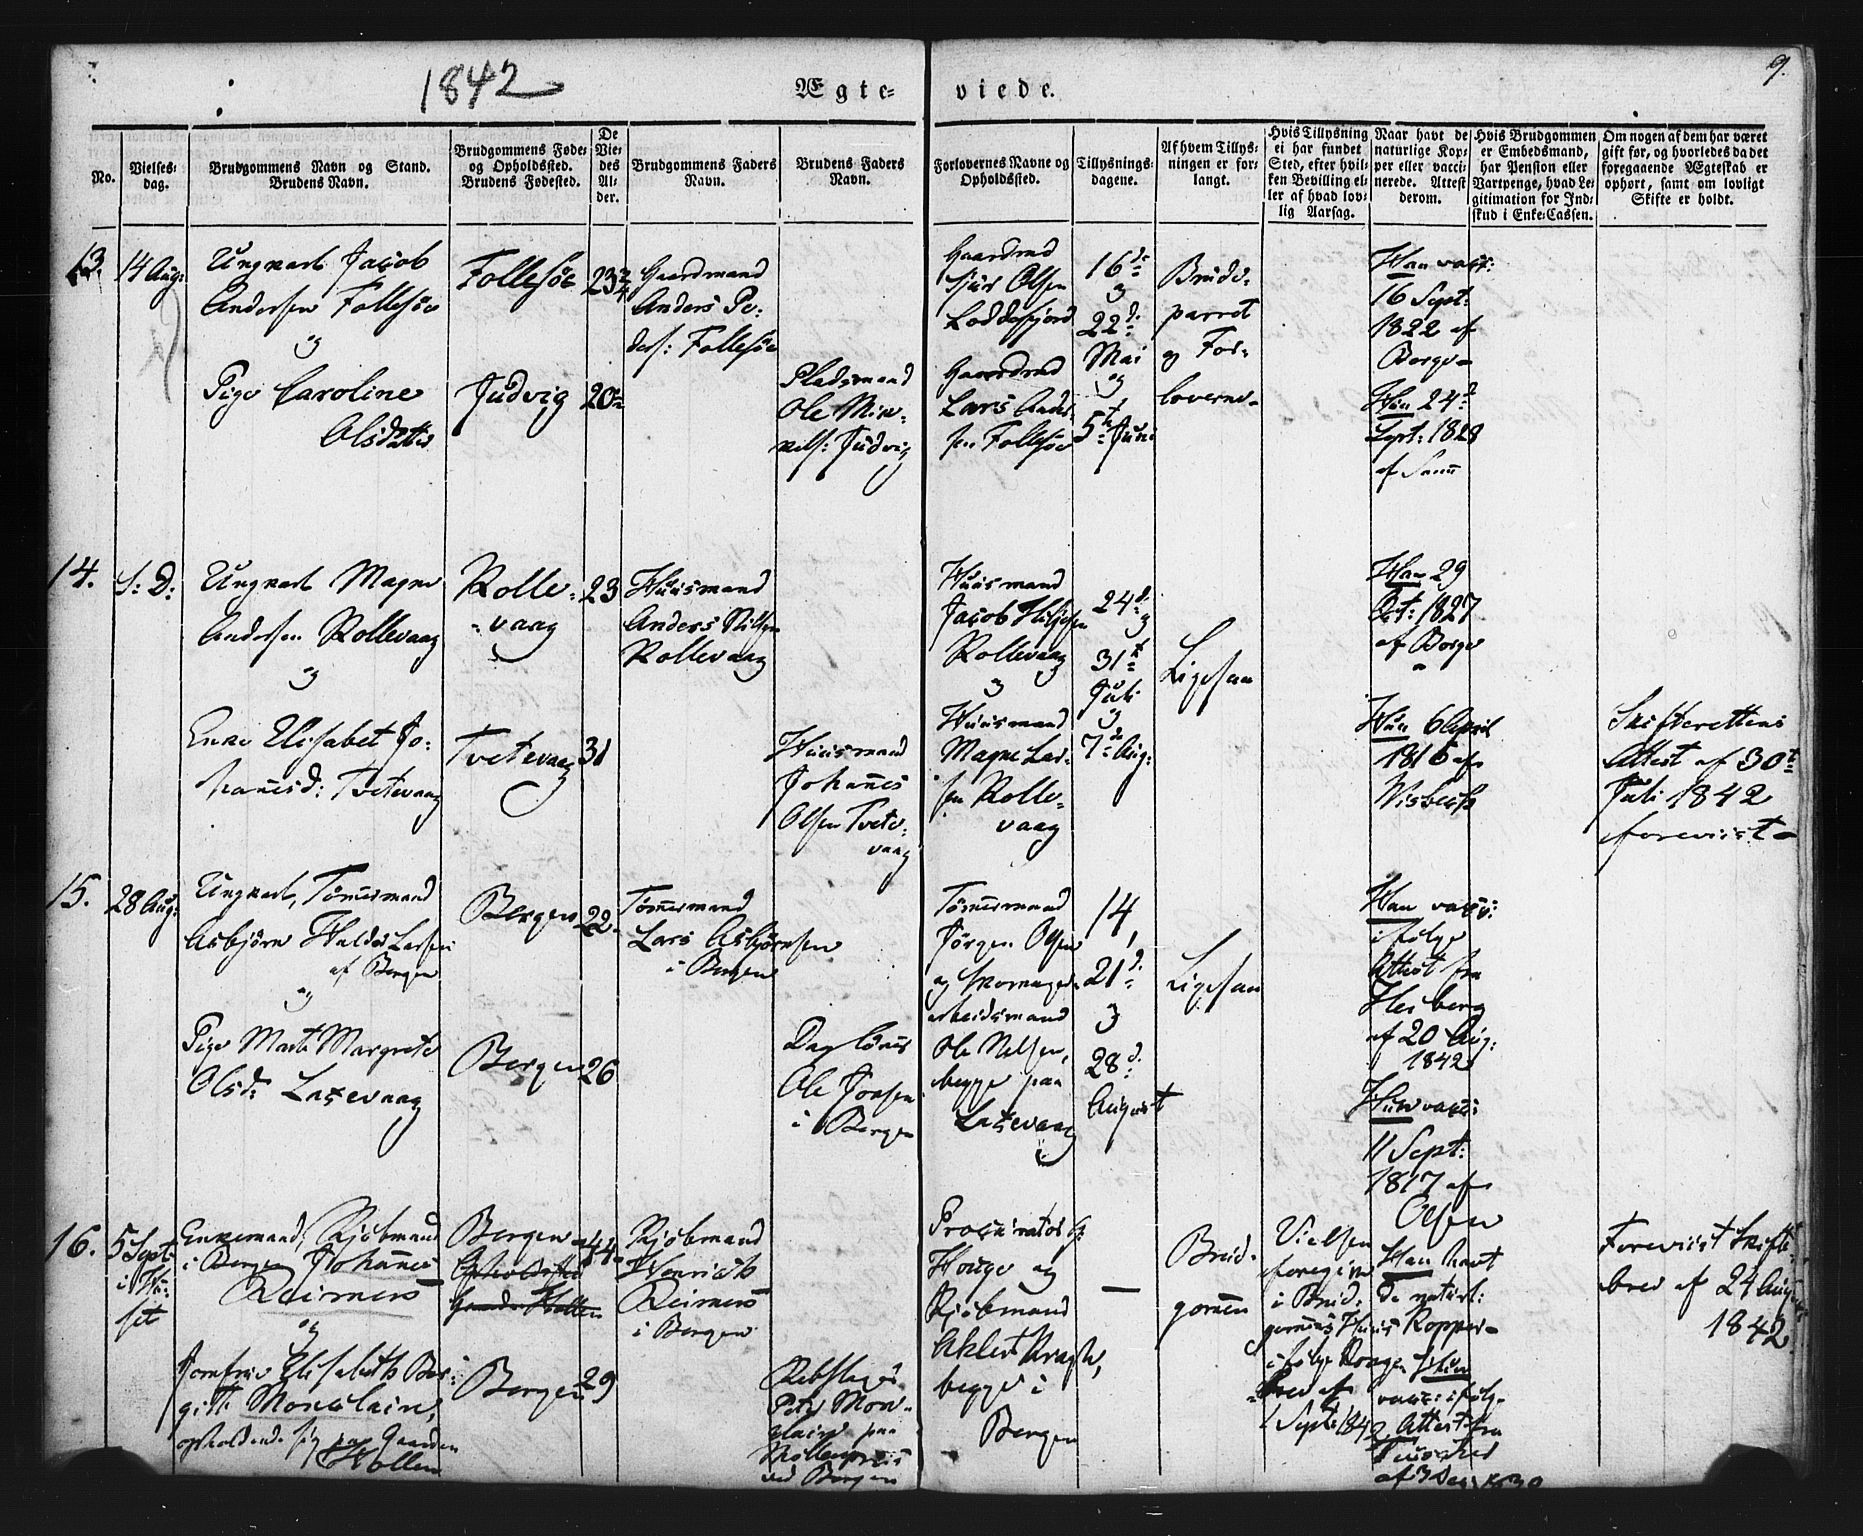 1842
Ægte-
viede.
9.
No.
Vielses-
dag.
Brudgommens Navn og Stand.
Brudens Navn.
Brudgommens Føde-
og Opholdssted.
Brudens Fødested.
De
Vie-
des
Al-
der.
Brudgommens Faders
Navn.
Brudens Faders
Navn.
Forlovernes Navne og
Opholdssted.
Tillysnings-
dagene.
Af hvem Tillys-
ningen er for-
langt.
Hvis Tillysning
ei har fundet
Sted, efter hvil-
ken Bevilling el-
ler af hvad lov-
lig Aarsag.
Naar havt de
naturlige Kop-
per eller vacci-
nerede. Attest
derom.
Hvis Brudgommen
er Embedsmand,
har Pension eller
Vartpenge, hvad Le-
gitimation for Ind-
skud i Enke-Cassen.
Om nogen af dem har været
gift før, og hvorledes da det
foregaaende Ægteskab er
ophørt, samt om lovligt
Skifte er holdt.
13.
14 Aug:
Ungkarl Jacob
Andersen Follesøe
og
Pige Caroline
Olsdatter
Follesøe
Judvig
23 3/4
20
Gaardmand
Anders Pe-
ders: Follesøe
Pladsmand
Ole Min-
nels: Judvig
Gaardmd
Sjur Olsen
Loddefjord
Gaardmd
Lars Ander-
sen Follesøe
16de
og
22d.
Mai
og
5te Juni
Brude-
parret
og For-
loverne
Han vacc:
16 Sept:
1822 af
Borge
Hun 24d
Sept: 1828
af
14.
S: D:
Ungkarl Magne
Andersen Rollevaag
og
Enke Elisabet Jo-
hannesd: Tvetevaag
Rolle-
vaag
Tvetevaag
23
31
Huusmand
Anders Nilsen
Rollevaag
Huusmand
Johannes
Olsen Tvete-
vaag
Huusmand
Jacob
Rollevaag
og
Huusmand
Magne Lar-
sen Rolle-
vaag
24d.
og
31t
Juli
og
7de Aug:
Ligesaa
Han 29
Oct: 1827
af Borge
Hun 6 April
1816 af
Skifterettens
Attest af 30t
Juli 1842
foreviist
15.
28 Aug:
Ungkarl, Tömmermand
Asbjörn Halder Larsen
af Bergen
og
Pige Marte Margrete
Olsd: Laxevaag
Bergen
Bergen
22
26
Tømmermand
Lars Asbjørnsen
i Bergen
Daglönner
Ole Jonsen
i Bergen
Tömmermand
Jörgen Olsen
og Skomager-
arbeidsmand
Ole Nilsen,
begge paa
Laxevaag
14,
21d.
og
28d.
August
Ligesaa
Han vacc:
ifølge
Attest fra
Heiberg
af 20 Aug:
1842
Hun vacc:
11 Sept:
1817 af
Olsen
16.
5 Sept:
i Hu-
set
Enkemand, Kjöbmand
i Bergen Johannes
Reimers
og
Jomfrue Elisabeth Ber-
gitte Monclair,
opholdende sig paa Gaarden
Hollen
Bergen
Bergen
44
29
Kjöbmand
Henrich
Reimers
i Bergen
Rebslager
Peter Mon-
clair paa
Möllenpriis
ved Bergen
Procurator
Houge og
Kjöbmand
Ahlert Kragh,
begge i
Bergen
Brud-
gommen
Vielsen
foregik
i Brud-
gommens Huus
ifølge Konge-
brev af
1 Sept: 1842
Han havt
de naturl:
Kopper
Hun
vacc: ifølg.
Attest fra
Foreviist Skifte-
brev af 24 August
1842